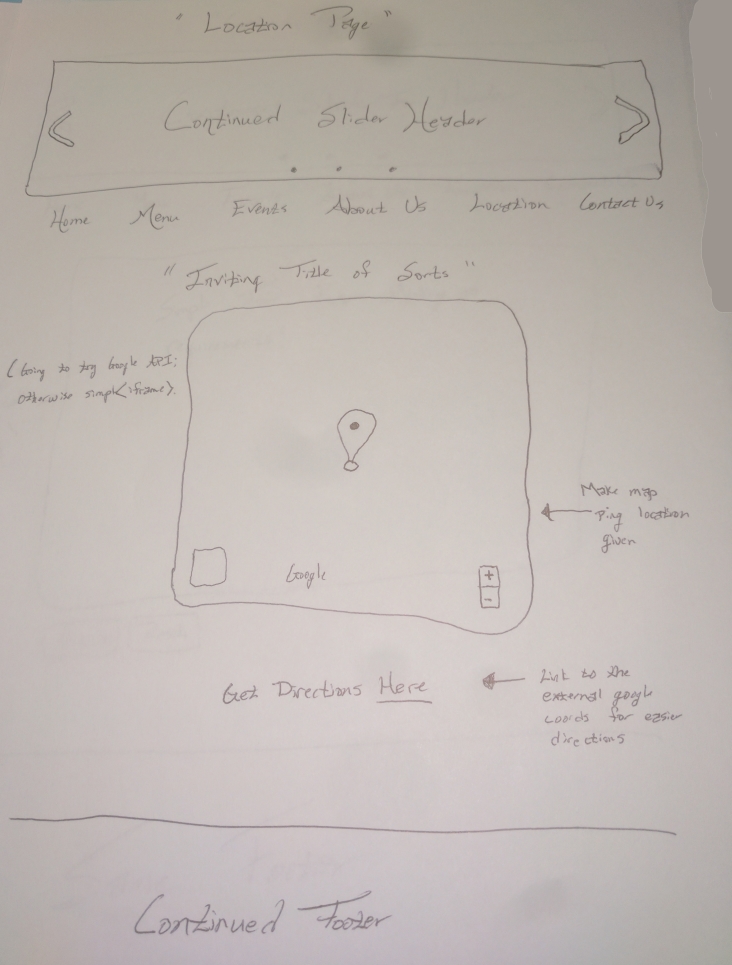 "Location Page"
Continued Slider Header
Home Menu Events About Us Location Contact Us
"Inviting Title of Sorts"
(Going to try Google API;
otherwise simple <iframe>).
Make map
ping location
given
Google
+
-
Get Directions Here
Link to the
external google
coords for easier
directions
Continued Footer